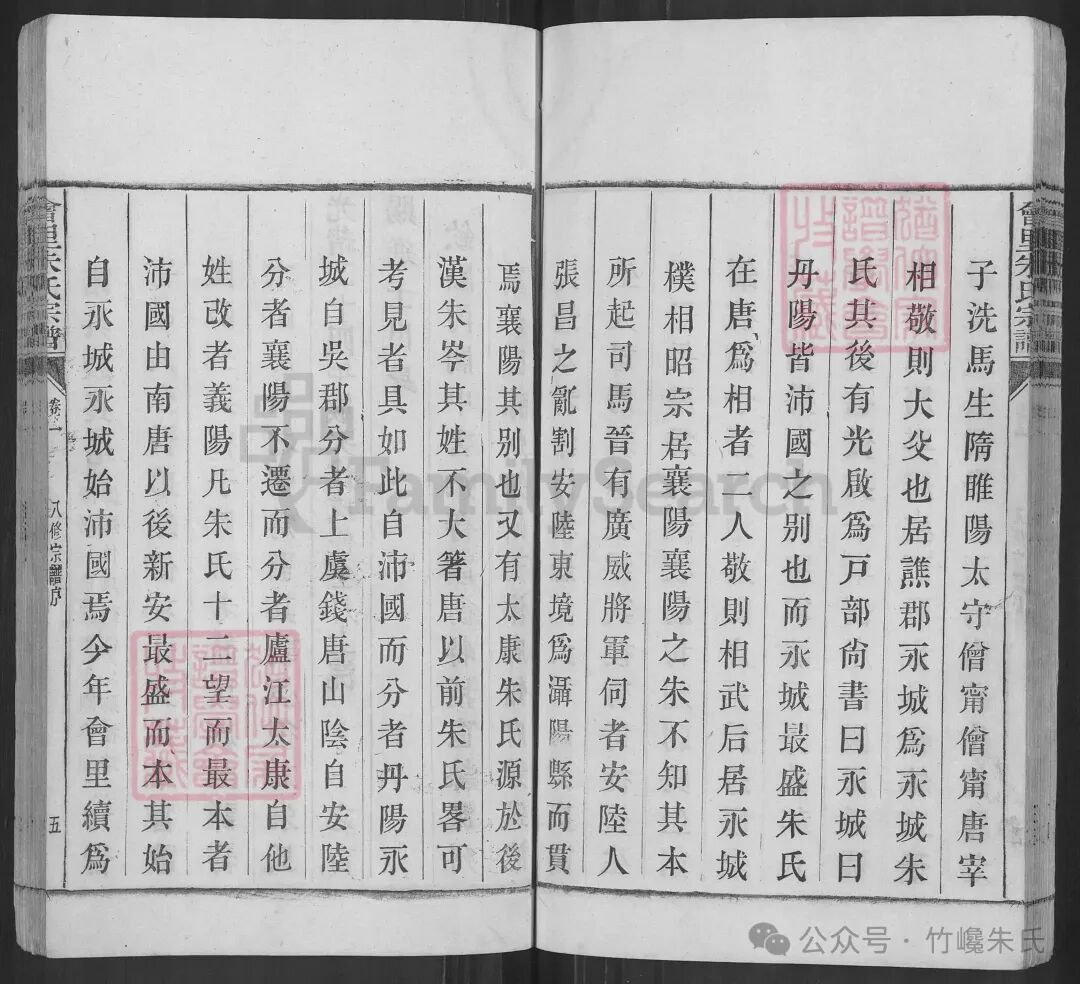 會里朱氏宗譜
子洗馬生隋睢陽太守僧甯僧甯唐宰
相敬則大父也居譙郡永城爲永城朱
氏其後有光啟爲戸部尙書曰永城曰
丹陽皆沛國之别也而永城最盛朱氏
在唐爲相者二人敬則相武后居永城
樸相昭宗居襄陽襄陽之朱不知其本
所起司馬晉有廣威將軍伺者安陸人
張昌之亂割安陸東境爲灄陽縣而貫
焉襄陽其别也又有太康朱氏源於後
漢朱岑其姓不大箸唐以前朱氏畧可
考見者具如此自沛國而分者丹陽永
城自吳郡分者上虞錢唐山陰自安陸
分者襄陽不遷而分者廬江太康自他
姓改者義陽凡朱氏十二望而最本者
沛國由南唐以後新安最盛而本其始
自永城永城始沛國焉今年會里續爲
會里朱氏宗譜
卷一
八修宗譜序
五
FamilySearch
公众号·竹巉朱氏